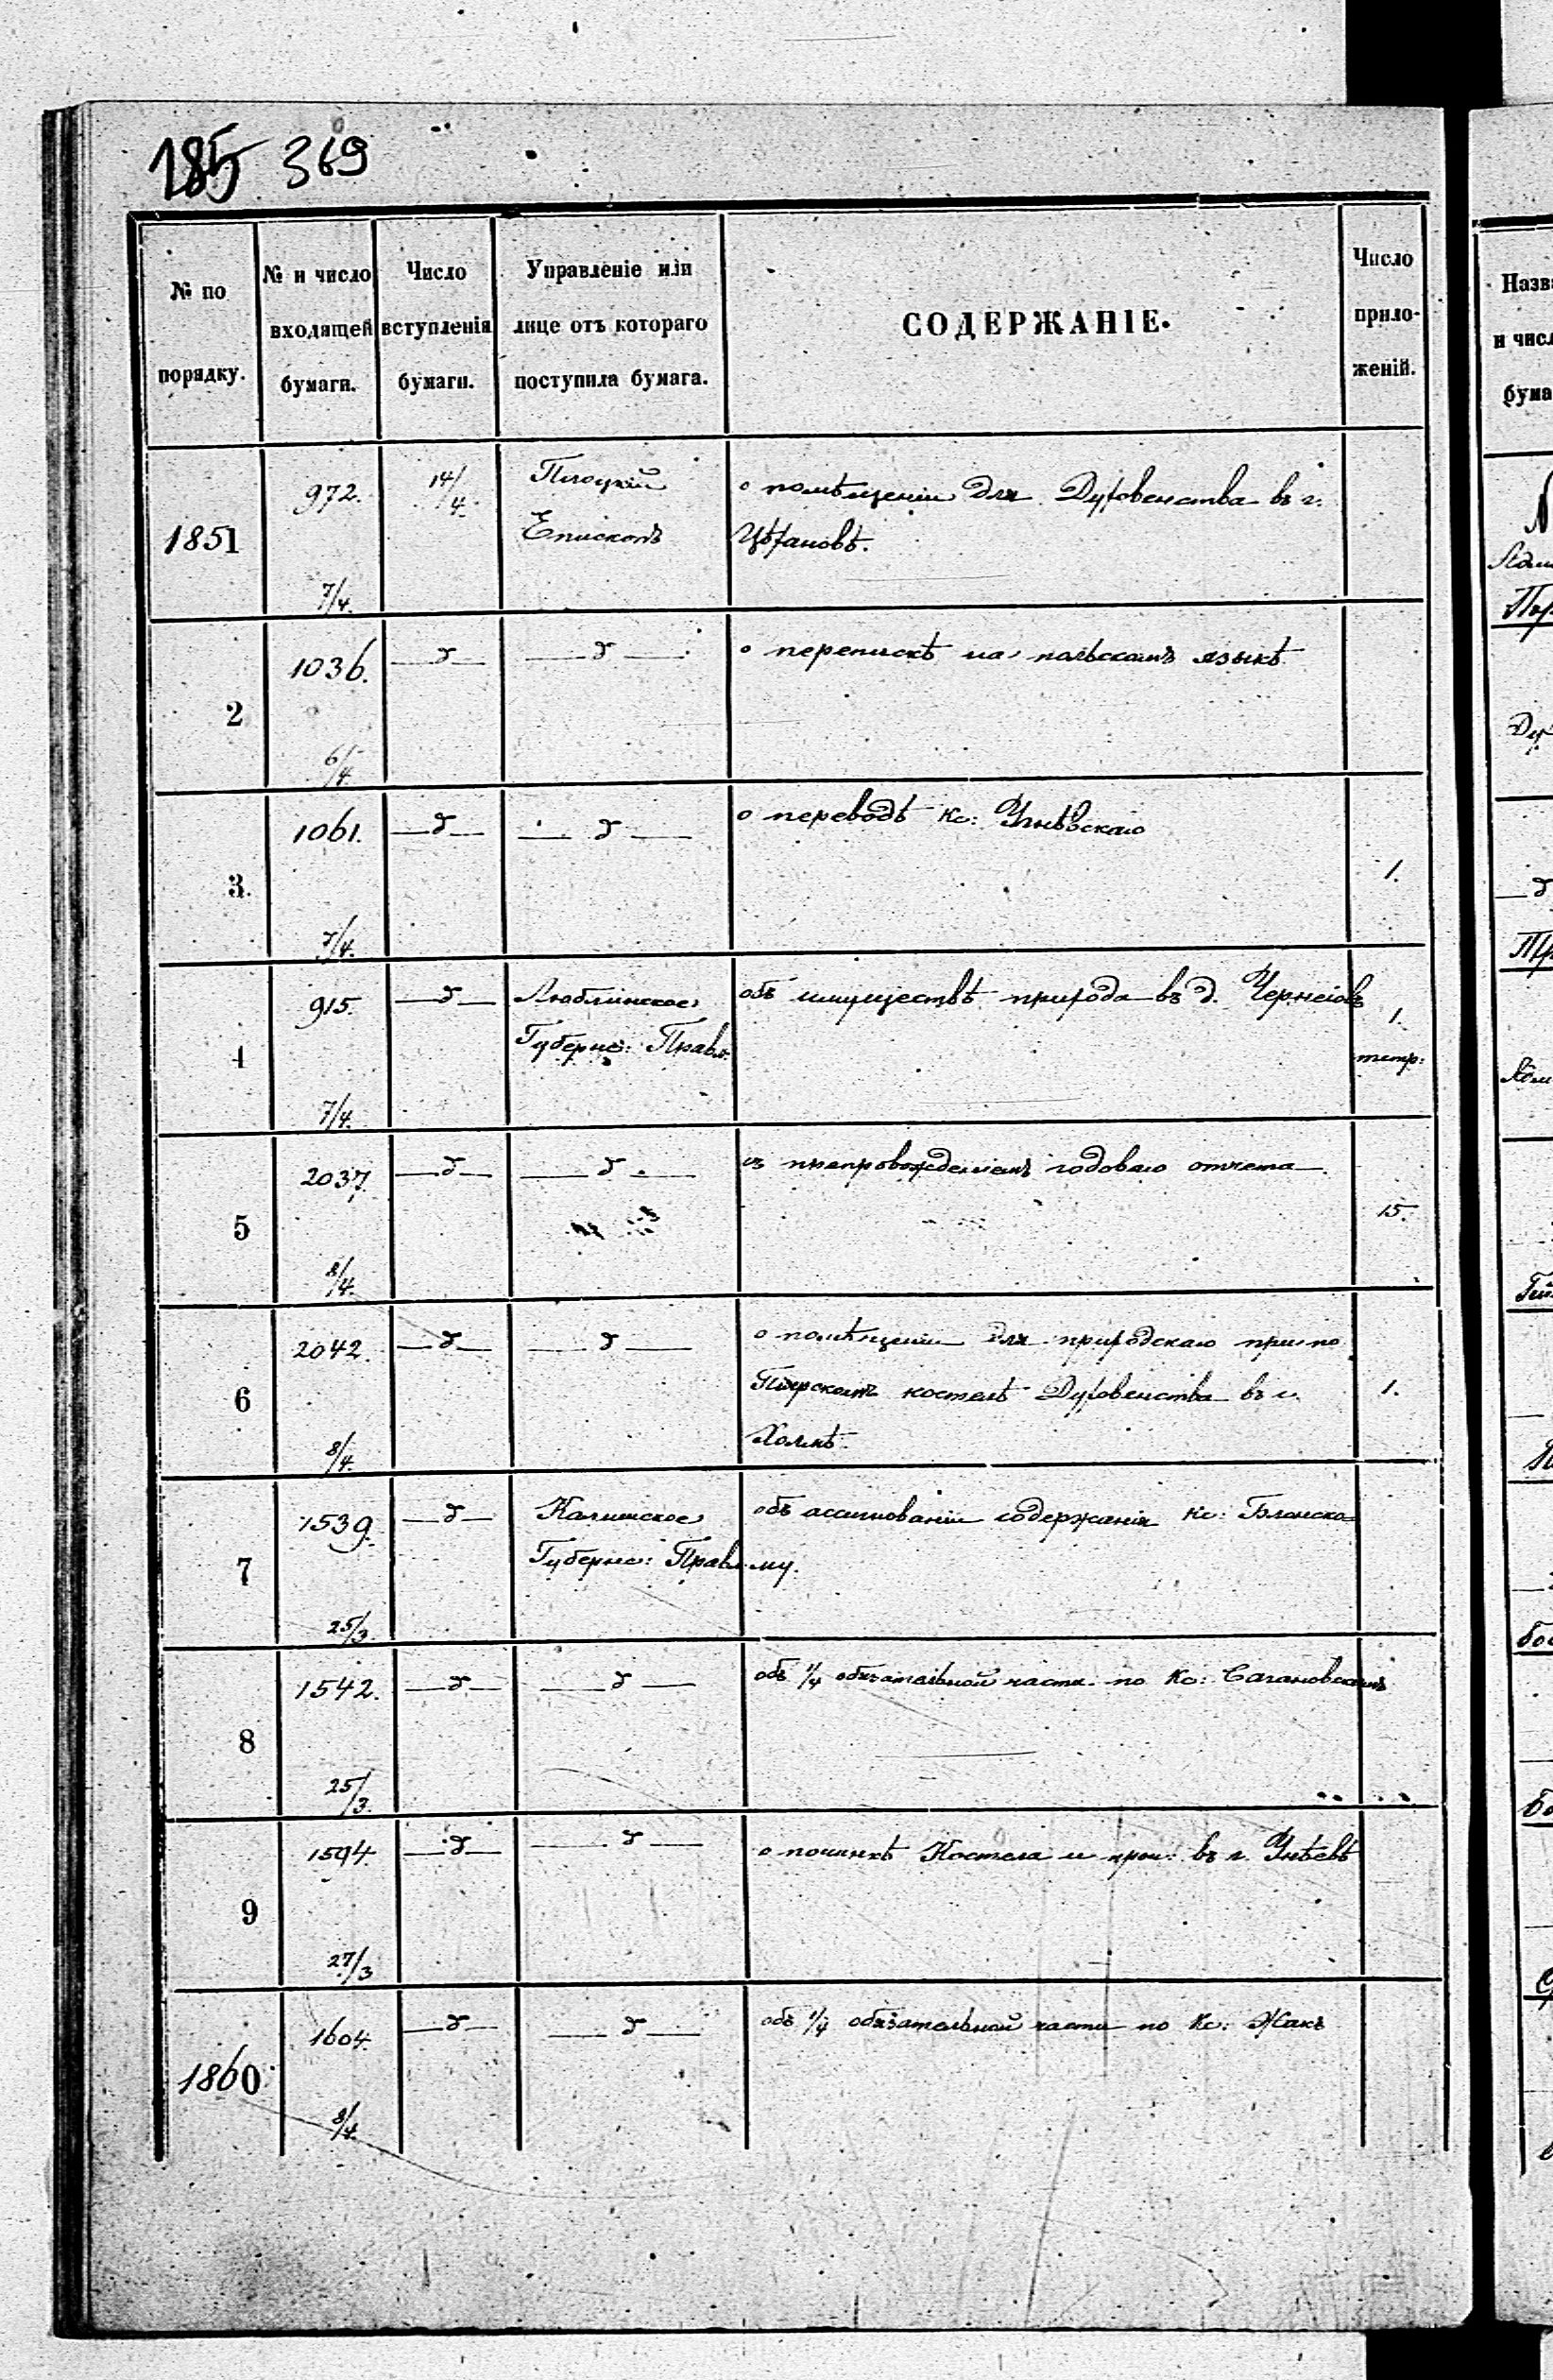 185 369
№ по порядку.
№ и число входящей бумаги.
Число вступленія бумаги.
Управленіе или лице отъ котораго поступила бумага.
СОДЕРЖАНІЕ.
Число приложеній.
1851
972.
7/4.
14/4.
Плоцкій
Епископъ
о помѣщеніи для Духовенства въ г.
Цѣхановѣ.
2
1036.
6/4.
— д —
— д —
о перепискѣ на польскомъ языкѣ
3.
1061.
7/4.
— д —
— д —
о переводѣ Кс:
1.
4
915.
7/4.
— д —
Люблинское
Губернс: Правл:
объ имуществѣ прихода въ д.
1.
тетр:
5
2037.
8/4.
— д —
— д —
съ препровожденіемъ годоваго отчета
15.
6
2042.
8/4.
— д —
— д —
о помѣщеніи для приходскаго при по
Піярскомъ костелѣ Духовенства въ г.
Холмѣ.
1.
7
1539.
25/3.
— д —
Калишское
Губернс: Правл
объ ассигнованіи содержанія Кс: Блонско-
му.
8
1542.
25/3.
— д —
— д —
объ 1/4 обязательной части по Кс:
9
1594.
27/3
— д —
— д —
о починкѣ Костела и проч: въ г. Унѣевѣ
1860
1604.
8/4.
— д —
— д —
объ 1/4 обязательной части по Кс: Жакъ